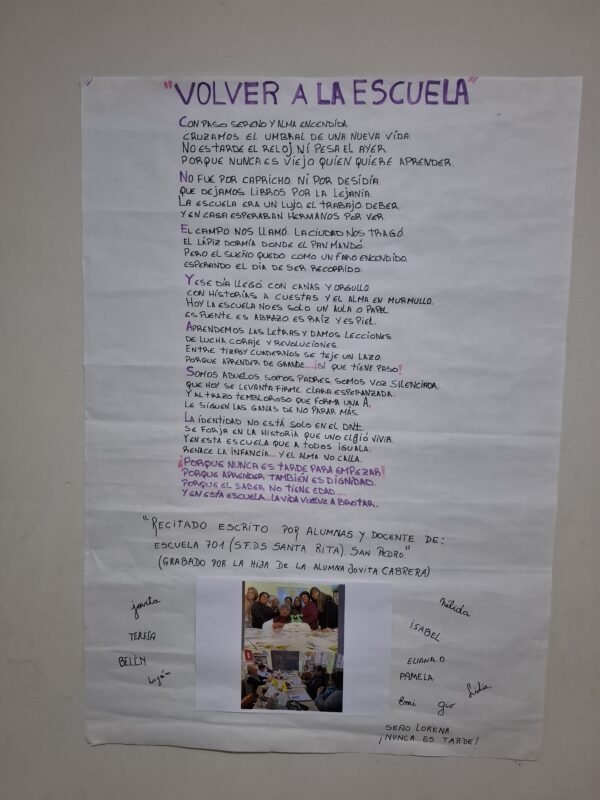 "VOLVER A LA ESCUELA"
CON PASO SERENO Y ALMA ENCENDIDA.
CRUZAMOS EL UMBRAL DE UNA NUEVA VIDA.
NO ES TARDE EL RELOJ NI PESA EL AYER,
PORQUE NUNCA ES VIEJO QUIEN QUIERE APRENDER.
NO FUE POR CAPRICHO, NI POR DESIDIA.
QUE DEJAMOS LIBROS POR LA LEJANIA.
LA ESCUELA ERA UN LUJO, EL TRABAJO DEBER,
Y EN CASA ESPERABAN HERMANOS POR VER.
EL CAMPO NOS LLAMÓ. LA CIUDAD NOS TRAGÓ.
EL LÁPIZ DORMÍA DONDE EL PAN MANDÓ.
PERO EL SUEÑO QUEDO COMO UN FARO ENCENDIDO.
ESPERANDO EL DIA DE SER RECORRIDO.
Y ESE DÍA LLEGÓ, CON CANAS Y ORGULLO.
CON HISTORIAS A CUESTAS Y EL ALMA EN MURMULLO.
HOY LA ESCUELA NO ES SOLO UN AULA O PAPEL
ES PUENTE, ES ABRAZO, ES RAÍZ Y ES PIEL.
APRENDEMOS LAS LETRAS Y DAMOS LECCIONES.
DE LUCHA CORAJE Y REVOLUCIONES.
ENTRE TIZAS Y CUADERNOS SE TEJE UN LAZO.
PORQUE APRENDER DE GRANDE...¡SI QUE TIENE PASO!
SOMOS ABUELOS, SOMOS PADRES, SOMOS VOZ SILENCIADA.
QUE HOY SE LEVANTA FIRME, CLARA ESPERANZADA.
Y AL TRAZO TEMBLOROSO QUE FORMA UNA A.
LE SIGUEN LAS GANAS DE NO PARAR MÁS.
LA IDENTIDAD NO ESTÁ SOLO EN EL DNI.
SE FORJA EN LA HISTORIA QUE UNO ELIGIÓ VIVIR.
Y EN ESTA ESCUELA QUE A TODOS IGUALA.
RENACE LA INFANCIA... Y EL ALMA NO CALLA.
¡PORQUE NUNCA ES TARDE PARA EMPEZAR!
PORQUE APRENDER TAMBIÉN ES DIGNIDAD.
PORQUE EL SABER NO TIENE EDAD...
Y EN ESTA ESCUELA...LA VIDA VUELVE A BROTAR.
"RECITADO ESCRITO POR ALUMNAS Y DOCENTE DE:
ESCUELA 701 (S.F.D.S SANTA RITA). SAN PEDRO"
(GRABADO POR LA HIJA DE LA ALUMNA JOVITA CABRERA)
jovita
TERESA
BELÉN
Luján
Nélida
ISABEL
ELIANA.O
PAMELA
Lidia
Emi gio
SEÑO LORENA.
¡NUNCA ES TARDE!